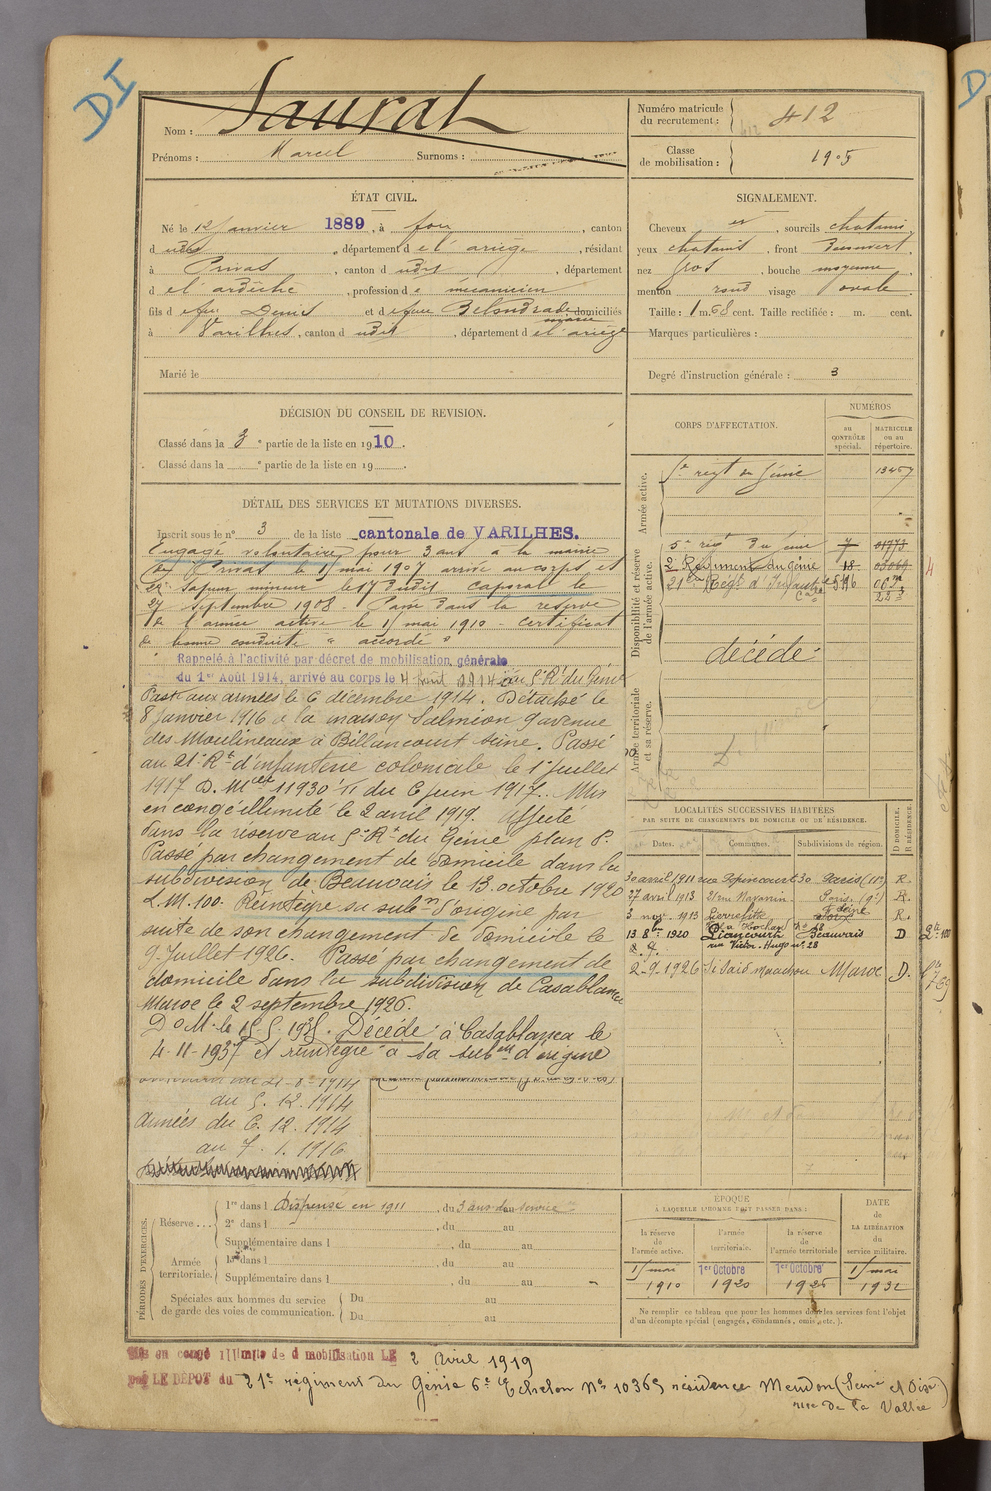 DI
Nom : Saurat
Prénoms : Marcel Surnoms :
Numéro matricule du recrutement : 412
Classe de mobilisation : 1905
ÉTAT CIVIL.
Né le 12 janvier 1889, à foix, canton
d udit, département de l'ariège, résidant
à Privas, canton d udit, département
de l'ardèche, profession de mécanicien
fils de feu Denis et de domiciliés
à Varilhes, canton d udit, département de l'ariège
Marié le
SIGNALEMENT.
Cheveux et, sourcils chatains
yeux chatains, front découvert
nez gros, bouche moyenne,
menton rond visage ovale.
Taille : 1 m. 68 cent. Taille rectifiée : m. cent.
Marques particulières :
Degré d'instruction générale : 3
DÉCISION DU CONSEIL DE REVISION.
Classé dans la 3e partie de la liste en 1910.
Classé dans la e partie de la liste en 19
DÉTAIL DES SERVICES ET MUTATIONS DIVERSES.
Inscrit sous le n° 3 de la liste cantonale de VARILHES.
Engagé volontaire pour 3 ans à la mairie
de Privas le 15 mai 1907 arrivé au corps et
2e sapeur mineur le 17 dudit caporal le
27 septembre 1908. Passé dans la réserve
de l'armée active le 15 mai 1910 - certificat
de bonne conduite "accordé"
Rappelé à l'activité par décret de mobilisation générale
du 1er Août 1914, arrivé au corps le 4 août 1914 au 5e Rt du Génie
Passé aux armées le 6 décembre 1914. Détaché le
8 janvier 1916 à la maison Salmson 9 avenue
des Moulineaux à Billancourt Seine. Passé
au 21e Rt d'infanterie coloniale le 1er juillet
1917 D. Melle 11930 du 6 juin 1917. Mis
en congé illimité le 2 avril 1919. Affecté
dans la réserve au 5e Rt du Génie plan P.
Passé par changement de domicile dans la
subdivision de Beauvais le 13 octobre 1920
L.M. 100. Réintégré sa subon d'origine par
suite de son changement de domicile le
9 Juillet 1926. Passé par changement de
domicile dans la subdivision de Casablanca
Maroc le 2 septembre 1926.
Do M. le 15.5.1935. Décédé à Casablanca le
4-11-1937 et réintégré à sa subon d'origine
au 5.12.1914
Armées du 6.12.1914
au 7.1.1916
CORPS D'AFFECTATION.
NUMÉROS
au CONTRÔLE spécial.
MATRICULE ou au répertoire.
Armée active.
5e regt du génie 13457
Disponibilité et réserve de l'armée active.
5e régt du génie 7 01773
2e Régiment du génie 18
21ème Régt d'Infanterie Cale 546
décédé
Armée territoriale et sa réserve.
LOCALITÉS SUCCESSIVES HABITÉES
PAR SUITE DE CHANGEMENTS DE DOMICILE OU DE RÉSIDENCE.
Dates. Communes. Subdivisions de région. D DOMICILE. R RÉSIDENCE.
30 avril 1911 rue Popincourt 30 Paris (11e) R.
27 avril 1913 21 rue Navarin Paris (9e) R.
3 nov. 1913 Pierrefitte Seine R.
13 8bre 1920 Liancourt Beauvais D
rue Victor-Hugo n° 28
2-9-1926 Si Saïd Maachou Maroc D.
PÉRIODES D'EXERCICES.
Réserve ....
1re dans l Dispensé en 1911, du 3 ans de service
2e dans l , du au
Supplémentaire dans l , du au
Armée territoriale.
1re dans l , du au
Supplémentaire dans l , du au
Spéciales aux hommes du service de garde des voies de communication.
Du au
Du au
ÉPOQUE
À LAQUELLE L'HOMME DOIT PASSER DANS :
la réserve de l'armée active.
l'armée territoriale.
la réserve de l'armée territoriale
DATE de LA LIBÉRATION du service militaire.
15 mai 1910
1er Octobre 1920
1er Octobre 1926
15 mai 1932
Ne remplir ce tableau que pour les hommes dont les services font l'objet
d'un décompte spécial (engagés, condamnés, omis, etc.).
Mis en congé illimité de démobilisation LE 2 Avril 1919
par LE DÉPOT du 21e régiment du Génie 6e Echelon N° 10365 résidence Meudon (Seine et Oise)
rue de la Vallée